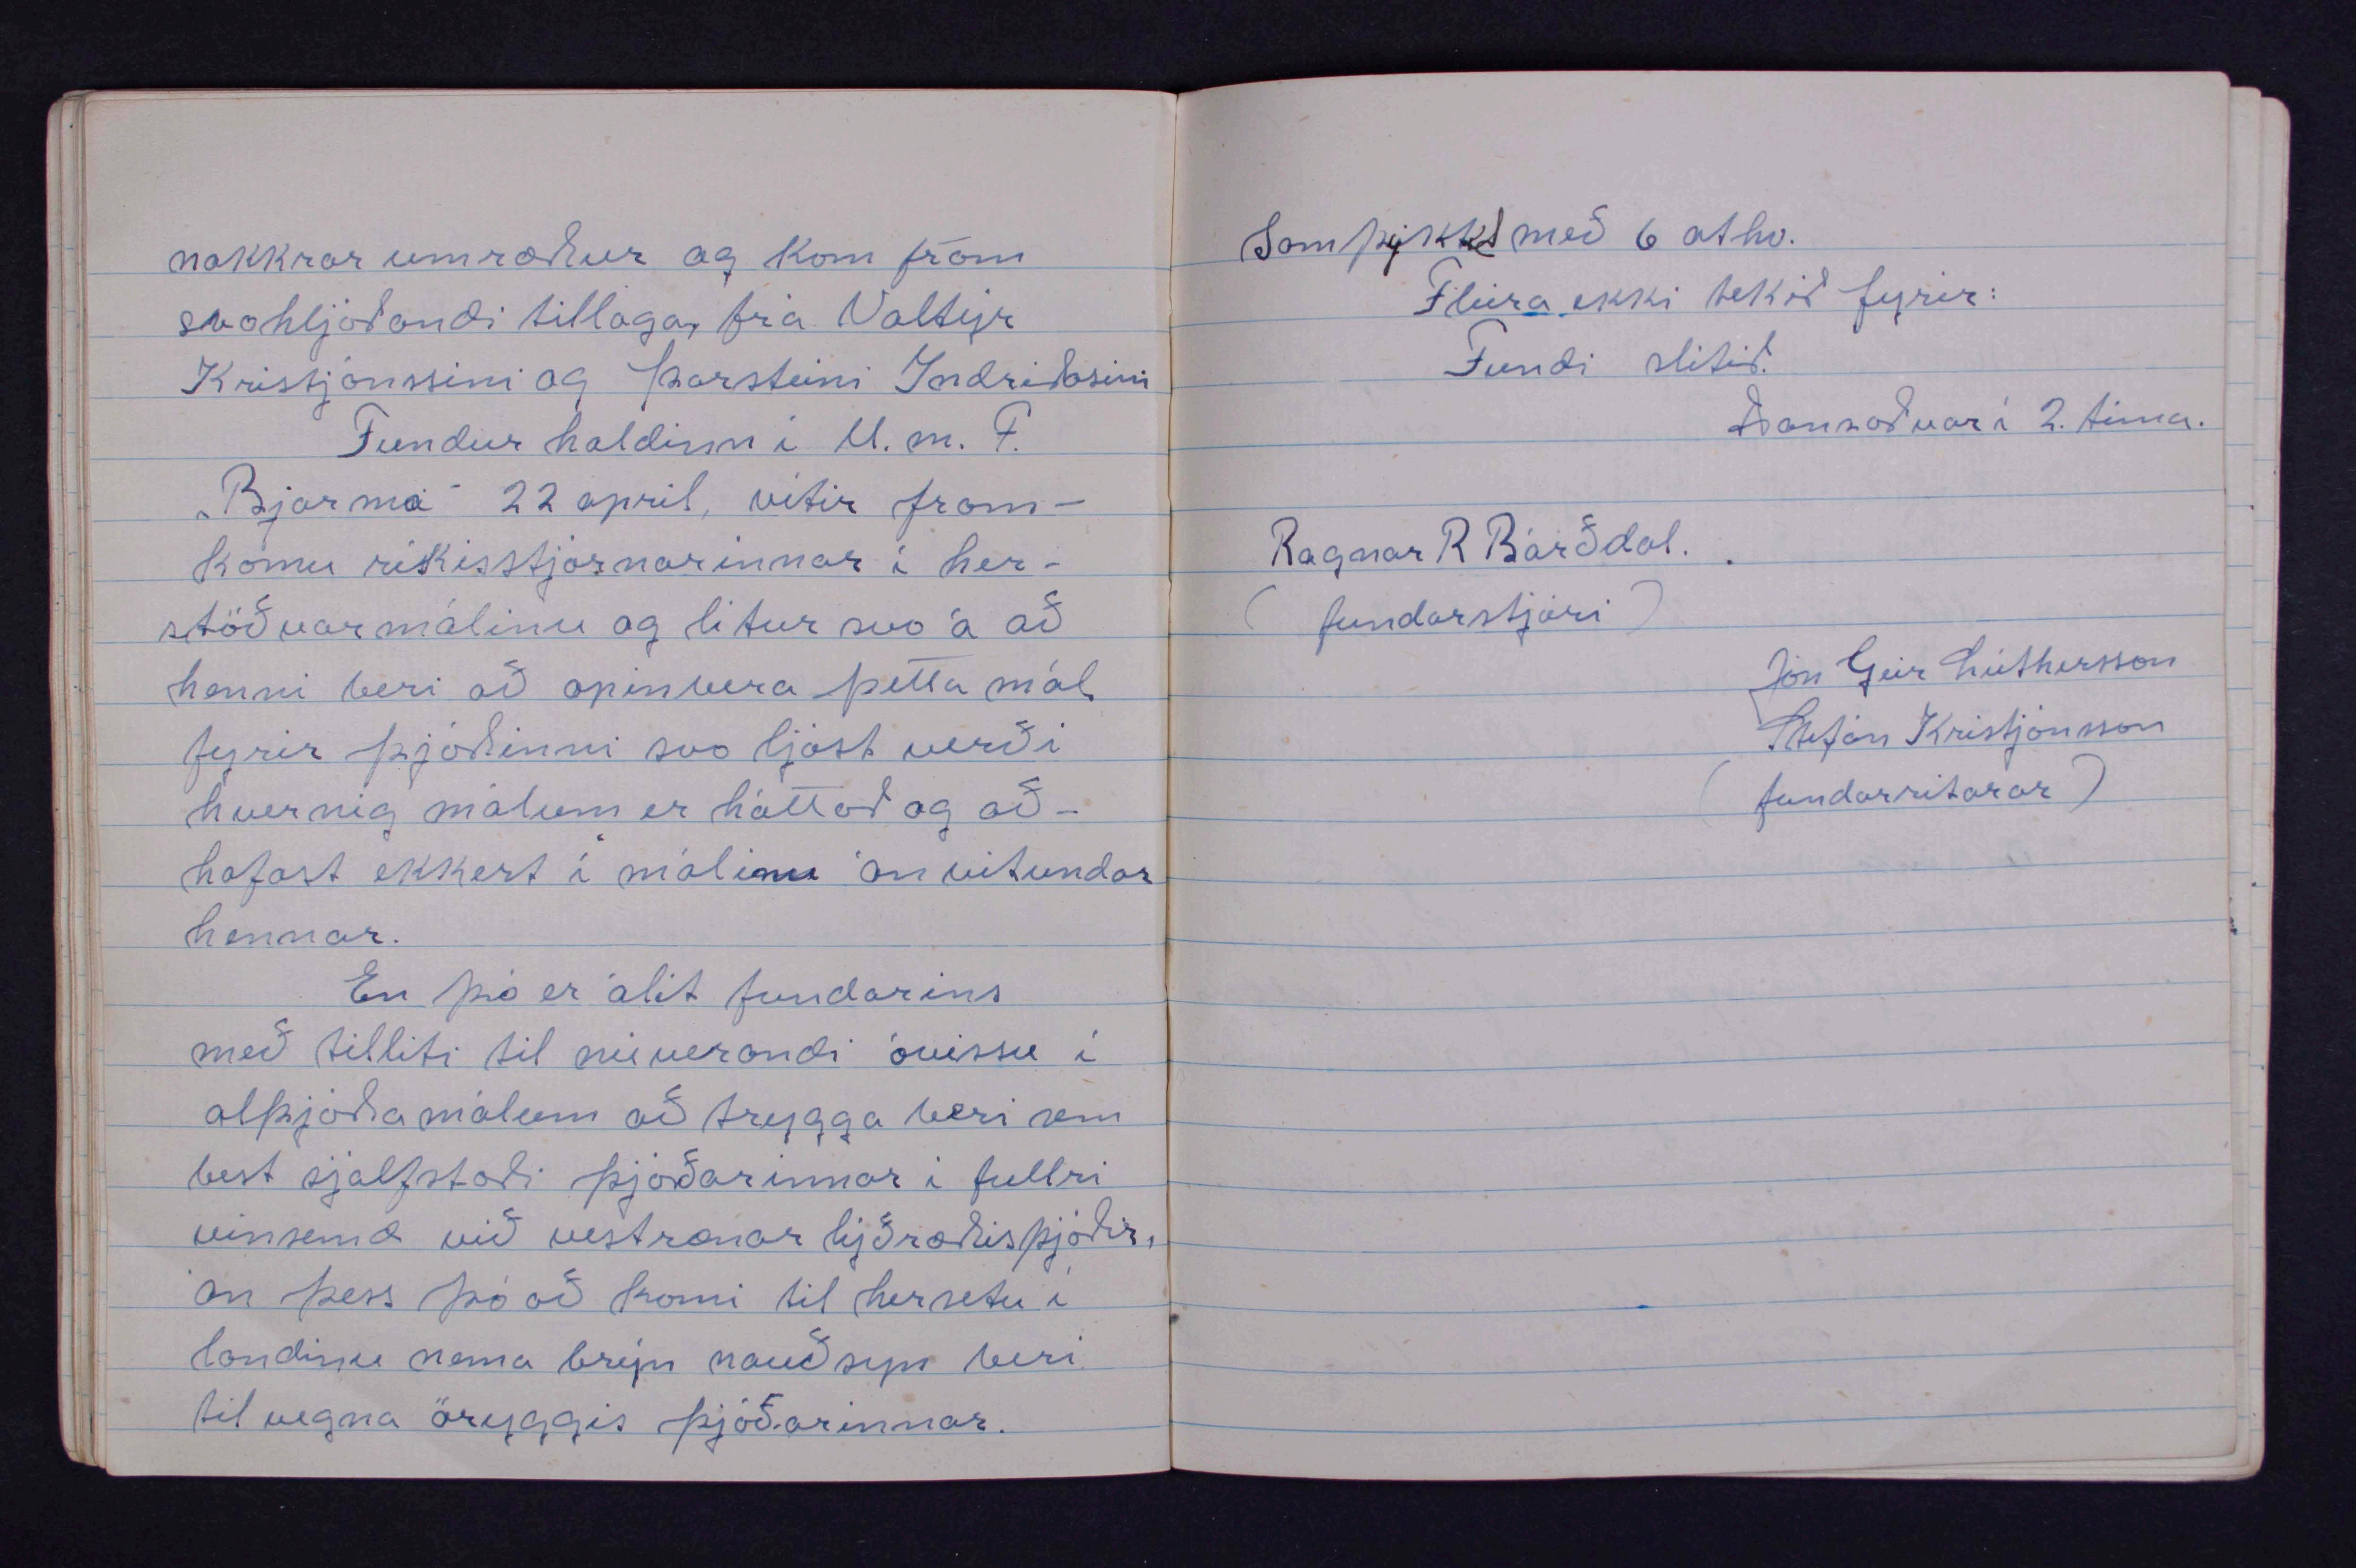 nokkrar umræður og kom fram
svohljóðandi tillaga, frá Valtýr
Kristjánssini og Þorsteini Indriðasini
Fundur haldinn í U. m. F.
„Bjarma" 22 apríl, vítir fram-
komu ríkisstjórnarinnar í her-
stöðvarmálinu og lítur svo á að
henni beri að opinbera þetta mál
fyrir þjóðinni svo ljóst verði
hvernig málum er háttað og að-
hafast ekkert í málinu án vitundar
hennar.
En þó er álit fundarins
með tilliti til núverandi óvissu í
alþjóðamálum að tryggja beri sem
best sjálfstæði þjóðarinnar í fullri
vinsemd við vestrænar lýðræðisþjóðir,
án þess þó að komi til hersetu í
landinu nema brýn nauðsyn beri
til vegna öryggis þjóðarinnar.
Samþykkt með 6 atkv.
Fleira ekki tekið fyrir:
Fundi slitið.
Dansað var í 2. tíma.
Ragnar R Bárðdal.
(fundarstjóri)
Jón Geir Lúthersson
Stefán Kristjánsson
(fundarritarar)